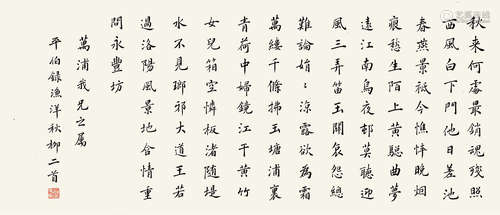 秋來何處最銷魂殘照
西風白下門他日差池
春燕景祗今憔悴晚烟
痕愁生陌上黃驄曲夢
遠江南烏夜邨莫聽迎
風三弄笛玉關哀怨總
難論娟〻涼露欲為霜
萬縷千條拂玉塘浦裏
青荷中婦鏡江干黃竹
女兒箱空憐板渚隨堤
水不見瑯邪大道王若
過洛陽風景地含情重
問永豐坊
萬浦我兄之屬
平伯錄漁洋秋柳二首